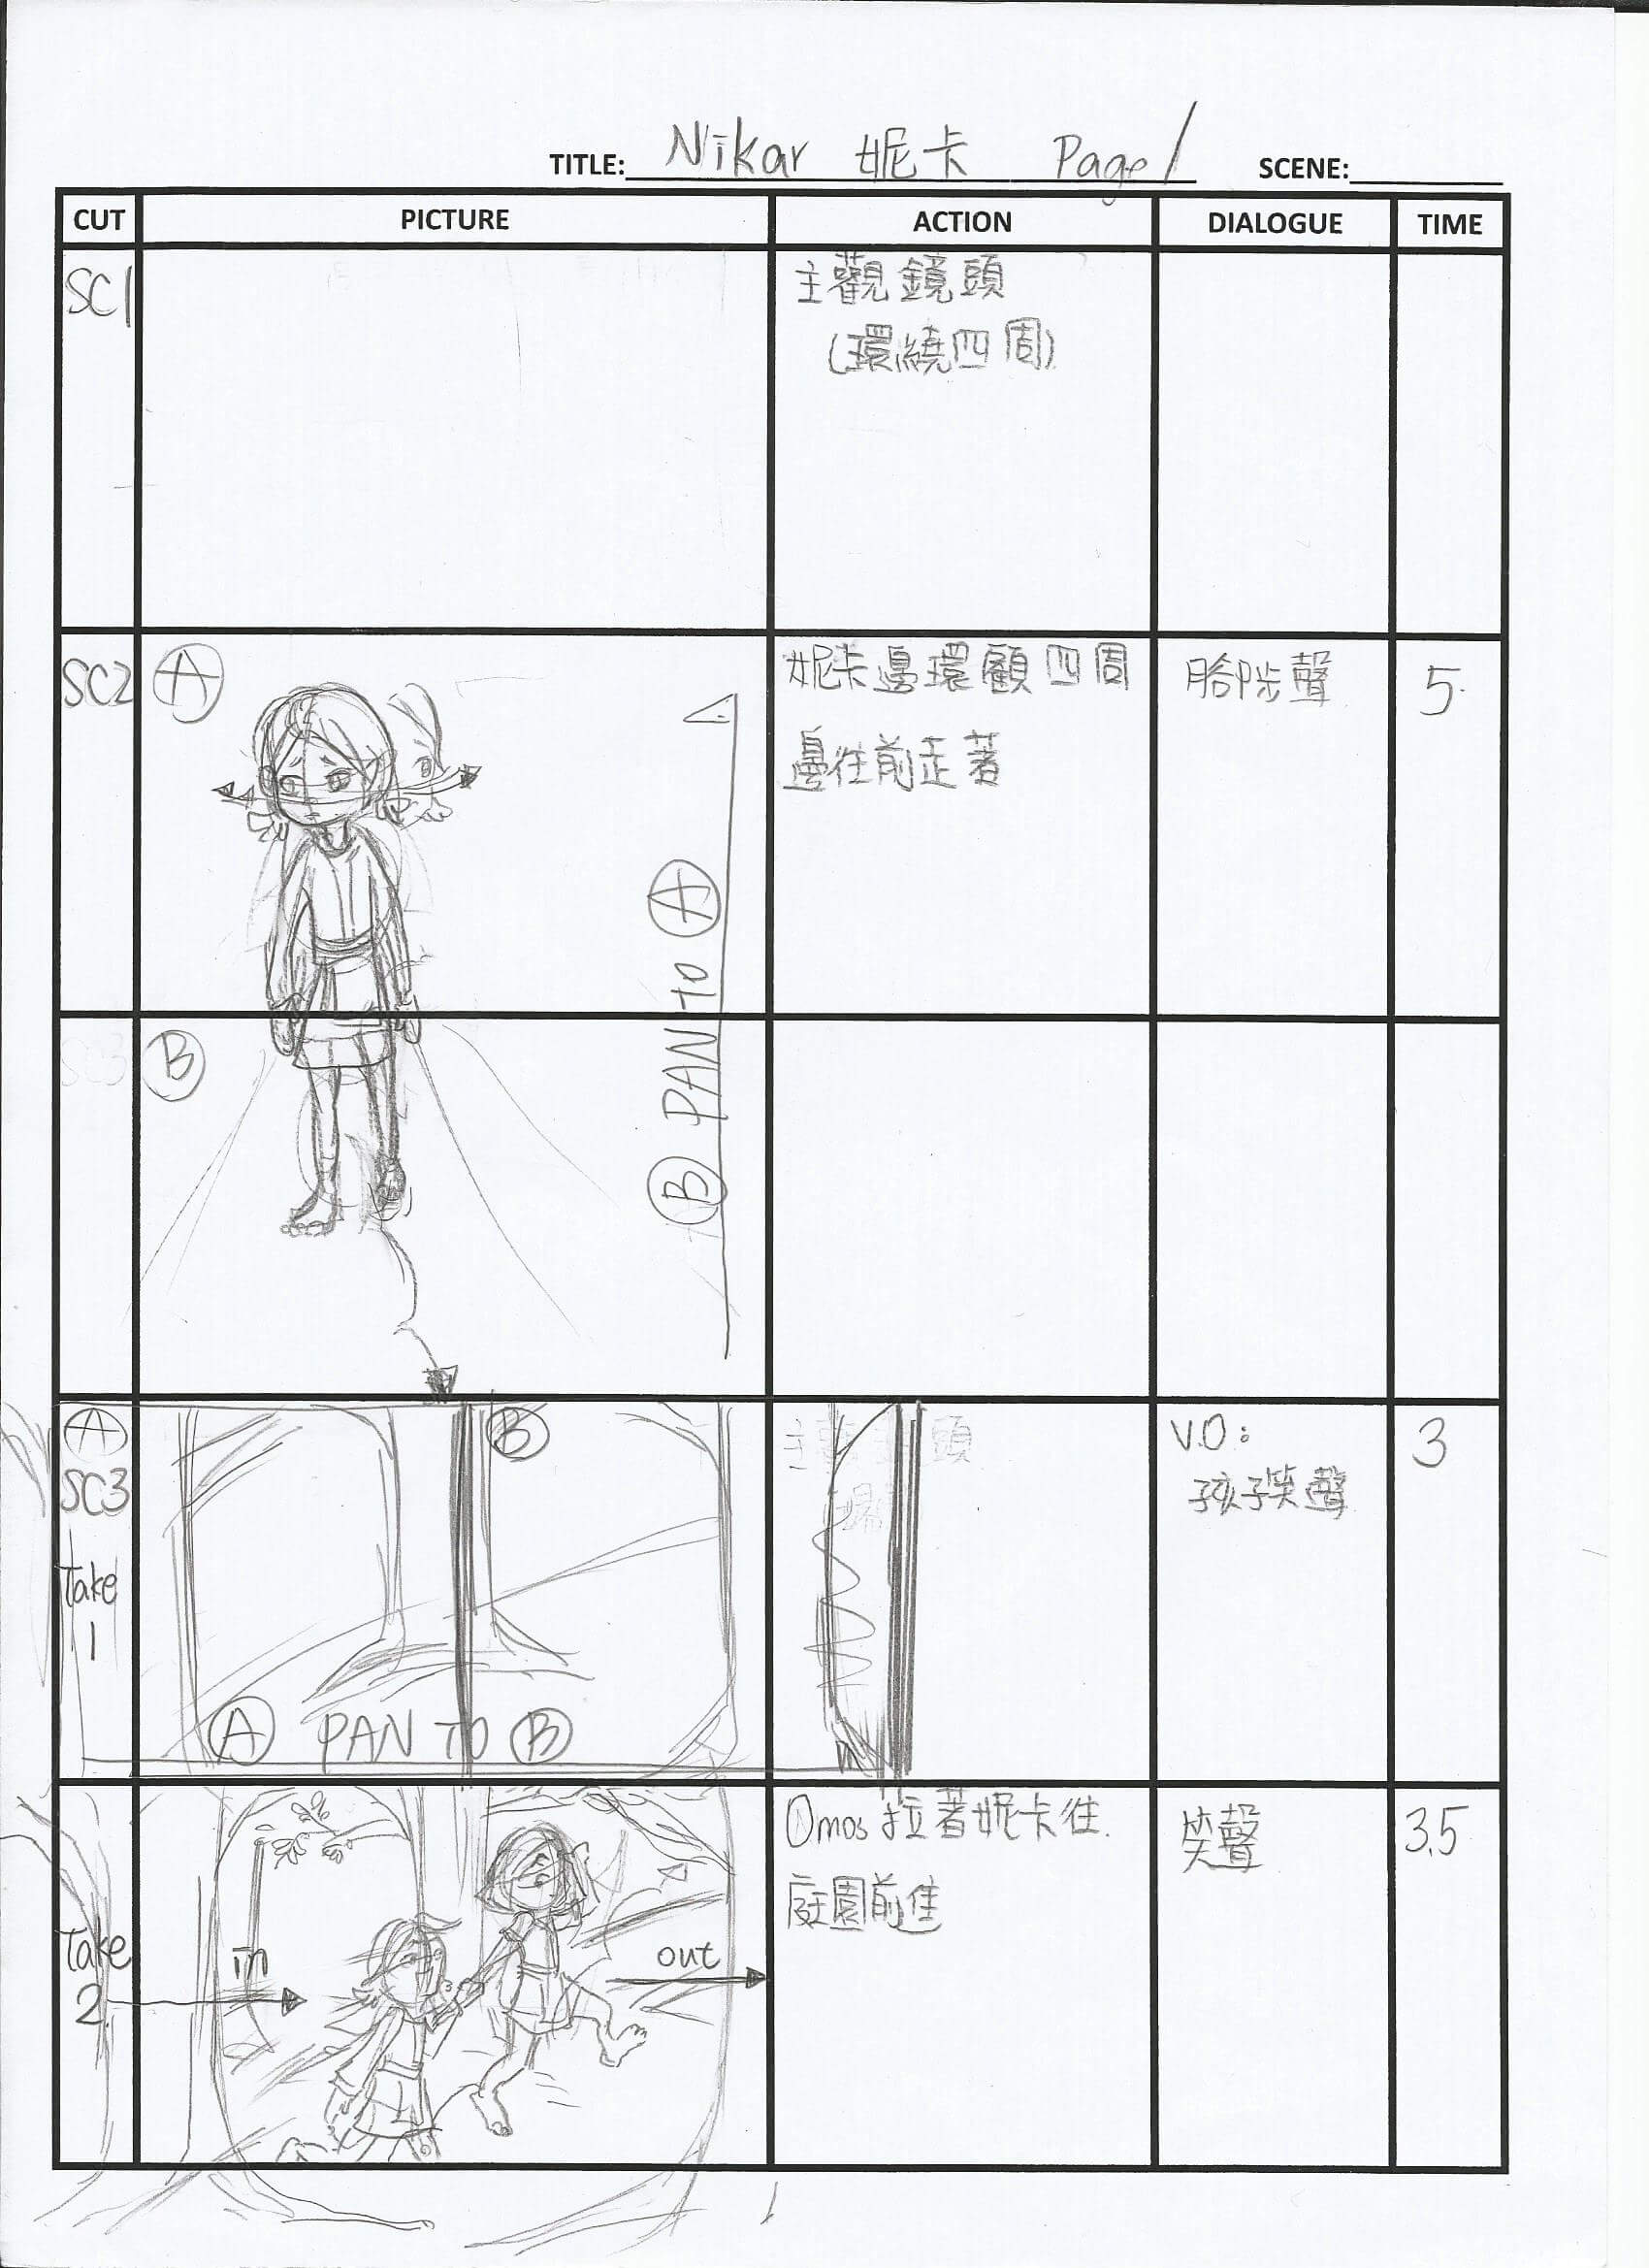 TITLE: Nikar 妮卡 Page 1 SCENE:
CUT PICTURE ACTION DIALOGUE TIME
SC1
主觀鏡頭
(環繞四周)
SC2
A
妮卡邊環顧四周
邊往前走著
腳步聲
5
B
B PAN TO A
A
SC3
Take
1
B
A PAN TO B
主觀鏡頭
V.O:
孩子笑聲
3
Take
2
in
out
Omos拉著妮卡往
庭園前進
笑聲
3.5